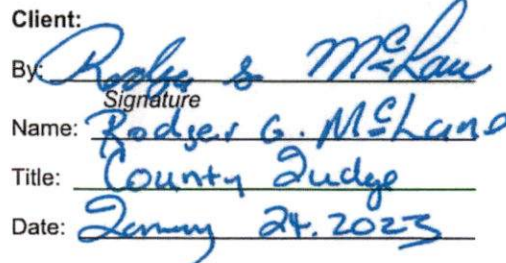 Client:
By: Rodger G. McLane
Signature
Name: Rodger G. McLane
Title: County Judge
Date: January 24, 2023